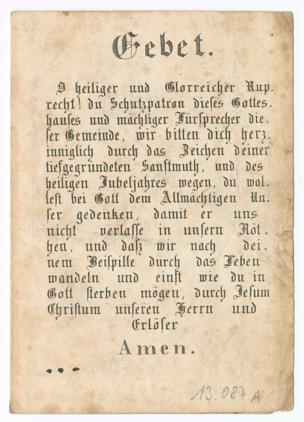 Gebet.
O heiliger und Glorreicher Rup-
recht! du Schutzpatron dieses Gottes-
hauses und mächtiger Fürsprecher die-
ser Gemeinde, wir bitten dich herz-
inniglich durch das Zeichen deiner
tiefgegründeten Sanftmuth, und des
heiligen Jubeljahres wegen, du wol-
lest bei Gott dem Allmächtigen Un-
ser gedenken, damit er uns
nicht verlasse in unsern Nöt-
hen, und daß wir nach dei-
nem Beispille durch das Leben
wandeln und einst wie du in
Gott sterben mögen, durch Jesum
Christum unseren Herrn und
Erlöser
Amen.
13.087 A